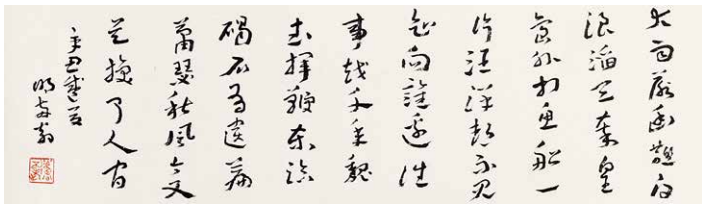 大雨落幽燕白
浪滔天秦皇
岛外打鱼船一
片汪洋都不见
知向谁边往
事越千年魏
武挥鞭东临
碣石有遗篇
萧瑟秋风今又
是换了人间
辛丑